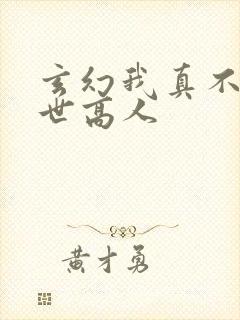 玄幻我真不
世高人
黄才勇